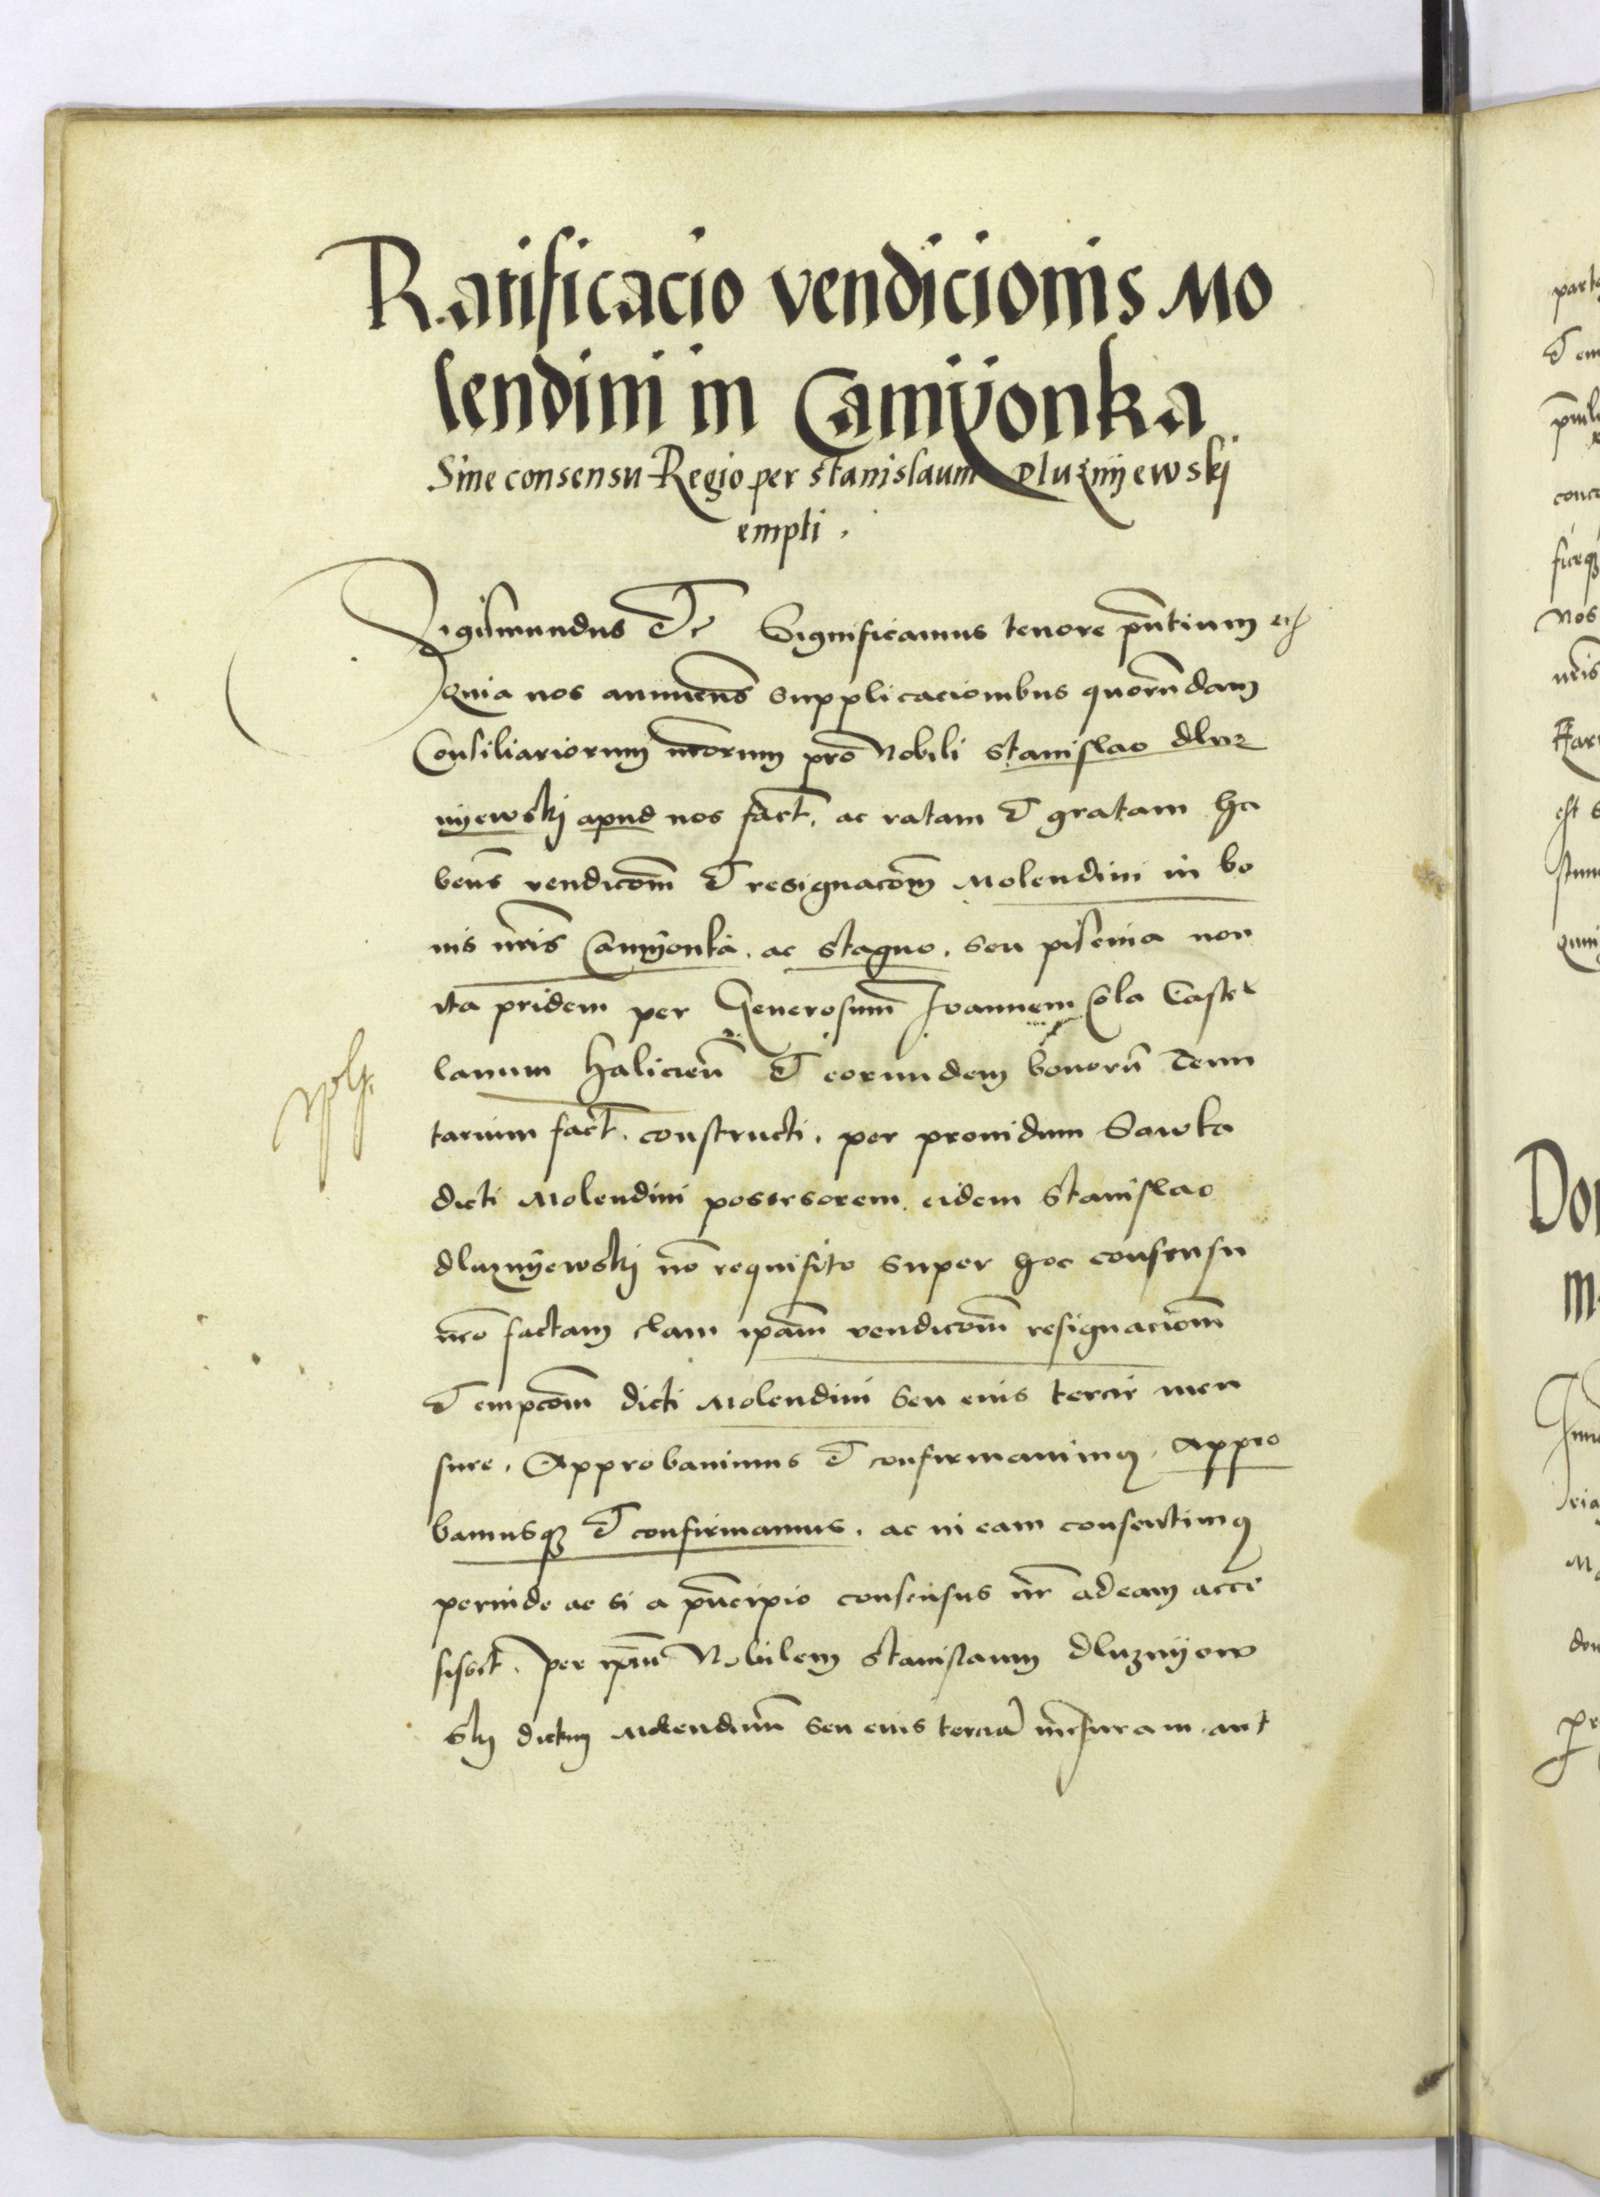 Ratificacio vendicionis Mo
lendini in Camÿonka
Sine consensu Regio per Stanislaum Dluznÿewskj
empti.
Sigismundus &c Significamus tenore pn̄tium etc
Quia nos annuen̄s supplicacionibus quorun̄dam
Consiliariorum nr̄orum pro Nobili Stanislao dluz
nÿewskj apud nos fact̄. ac ratam & gratam ha
ben̄s vendicōm̄ & resignacōm̄ Molendini in bo
nis nr̄is Camÿonka. ac stagno. seu piscina non
ita pridem per Generosum̄ Joannem Cola Castel
lanum Halicien̄ & eorundem bonorū Tenu
tarium fact̄. constructi. per prouidum Sawka
dicti Molendini possessorem eidem Stanislao
dluznÿewskj nō requisito super hoc consensu
nr̄o factam clam ip̄am vendicōm̄ resignaciōm̄
& empcōm̄ dicti Molendini seu eius tercie men
sure. Approbauimus & confirmauimus. Appro
bamusque & confirmamus. ac in eam consentimus
perinde ac si a pn̄cipio consensus nr̄ ad eam acce
sisset. per ip̄um Nobilem Stanislaum dluznÿew
skj dictum Molendinū seu eius terciā mēsuram aut
parte
& em
conce
Nos
nr̄is
est s
Don
M